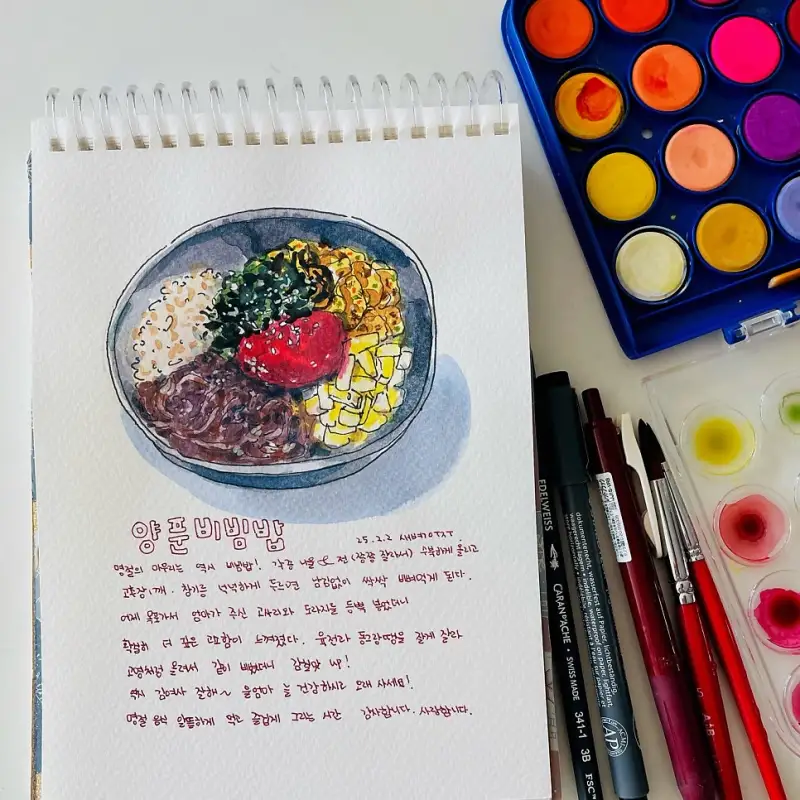 양푼비빔밥
25.2.2 새벽
명절의 마무리는 역시 비빔밥! 각종 나물 & 전 (쫑쫑 잘라서) 수북하게 올리고
고추장 1개. 참기름 넉넉하게 두르면 남김없이 싹싹 비벼먹게 된다.
어제 목포가서 엄마가 주신 고사리와 도라지를 듬뿍 넣었더니
확실히 더 깊은 고소함이 느껴졌다. 육전과 동그랑땡을 잘게 잘라
고명처럼 올려서 같이 비볐더니 감칠맛 up!
역시 김여사 잘해~ 울엄마 늘 건강하시고 오래 사세요!
명절 음식 알뜰하게 먹고 즐겁게 그리는 시간 감사합니다. 사랑합니다.
EDELWEISS
CARAN D'ACHE • SWISS MADE 341-1 3B FSC
dokumentenecht, wasserfest auf Papier, lichtbeständig
indelible, waterproof on paper, lightfast
AP